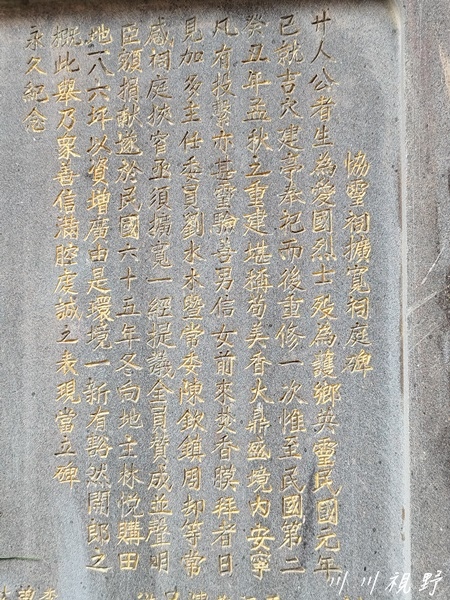 協靈祠擴寬祠庭碑
廿人公者生為愛國烈士歿為護鄉英靈民國元年
已就吉穴建亭奉祀而後重修一次惟至民國第二
癸丑年孟秋之重建堪稱苟美香火鼎盛境內安寧
凡有投誓亦甚靈驗善男信女前來焚香膜拜者日
見加多主任委員劉水木暨常委陳欽鎮周却等常
感祠庭挾窄亟須擴寬一經提議全員贊成並聲明
臣額捐献遂於民國六十五年冬向地主林悅購田
地一八六坪以資增廣由是環境一新有豁然開郎之
概此舉乃眾善信滿腔虔誠之表現當立碑
永久紀念
川川視野